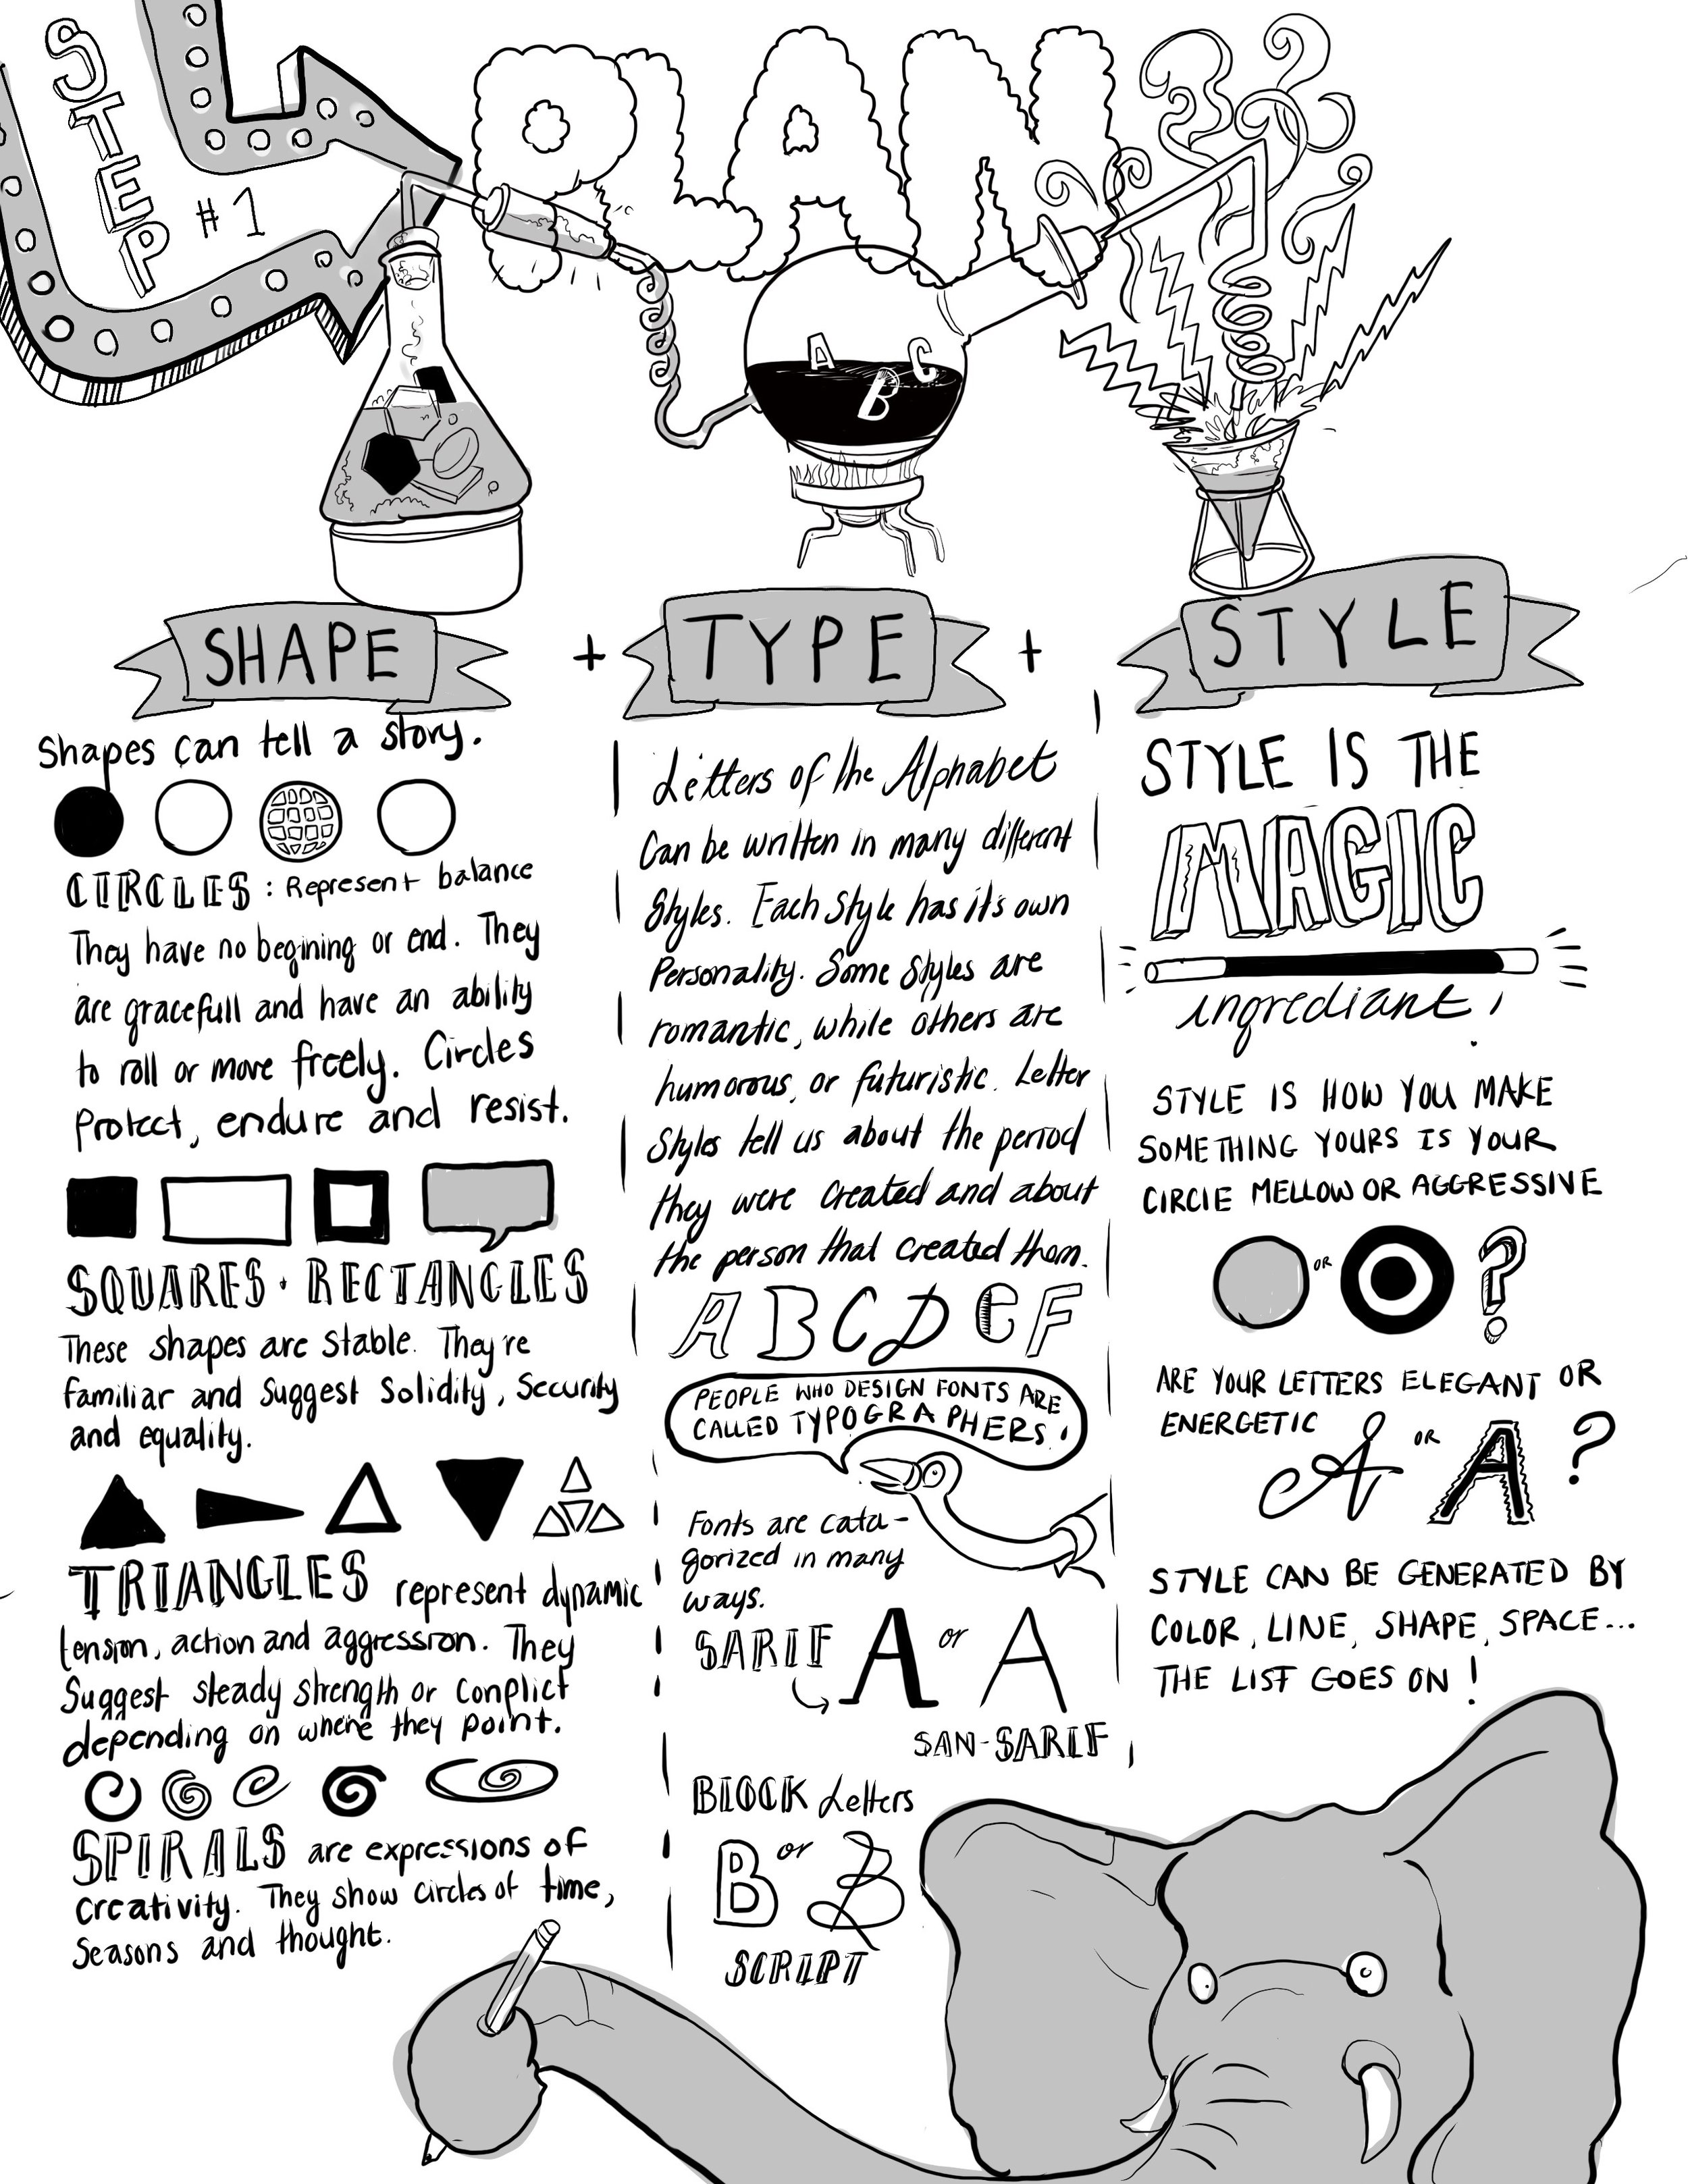 STEP
#1
PLAN
A B C
SHAPE + TYPE + STYLE
Shapes can tell a story.
CIRCLES: Represent balance
They have no begining or end. They
are gracefull and have an ability
to roll or move freely. Circles
Protect, endure and resist.
SQUARES + RECTANGLES
These shapes are stable. They're
familiar and suggest Solidity, Security
and equality.
TRIANGLES represent dynamic
tension, action and aggression. They
Suggest steady strength or conflict
depending on where they point.
SPIRALS are expressions of
creativity. They show circles of time,
Seasons and thought.
Letters of the Alphabet
Can be written in many different
Styles. Each Style has it's own
Personality. Some Styles are
romantic, while others are
humorous, or futuristic. Letter
Styles tell us about the period
they were created and about
the person that created them.
A B C D e F
PEOPLE WHO DESIGN FONTS ARE
CALLED TYPOGRAPHERS!
Fonts are cata-
gorized in many
ways.
SARIF A or A
SAN-SARIF
BLOCK Letters
B or B
SCRIPT
STYLE IS THE
MAGIC
ingrediant!
STYLE IS HOW YOU MAKE
SOMETHING YOURS IS YOUR
CIRCLE MELLOW OR AGGRESSIVE
OR ?
ARE YOUR LETTERS ELEGANT OR
ENERGETIC
A OR A ?
STYLE CAN BE GENERATED BY
COLOR, LINE, SHAPE, SPACE...
THE LIST GOES ON!